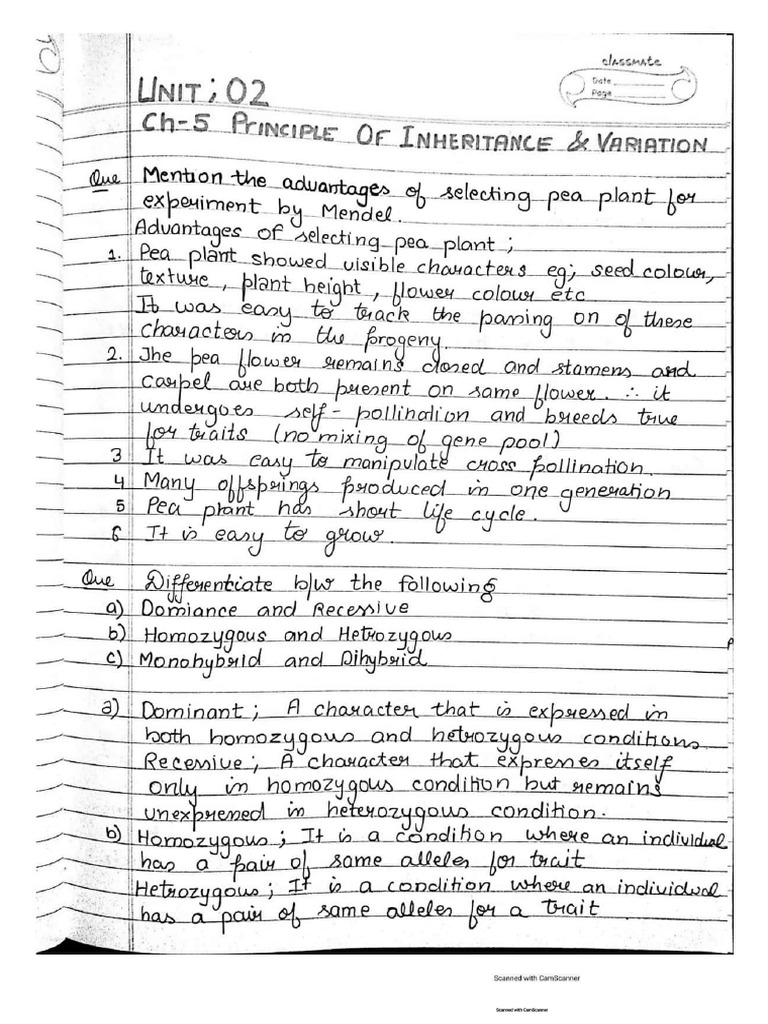 classmate
Date
Page
UNIT; 02
Ch-5 PRINCIPLE OF INHERITANCE & VARIATION
Que Mention the advantages of selecting pea plant for
experiment by Mendel.
Advantages of selecting pea plant;
1. Pea plant showed visible characters eg; seed colour,
texture, plant height, flower colour etc
It was easy to track the passing on of these
characters in the progeny.
2. The pea flower remains closed and stamens and
carpel are both present on same flower. ∴ it
undergoes self-pollination and breeds true
for traits (no mixing of gene pool)
3 It was easy to manipulate cross pollination.
4 Many offsprings produced in one generation
5 Pea plant has short life cycle.
6 It is easy to grow.
Que Differentiate b/w the following
a) Domiance and Recessive
b) Homozygous and Hetrozygous
c) Monohybrid and Dihybrid
a) Dominant; A character that is expressed in
both homozygous and hetrozygous conditions.
Recessive; A character that expresses itself
only in homozygous condition but remains
unexpressed in heterozygous condition.
b) Homozygous; It is a condition where an individual
has a pair of same alleles for trait
Hetrozygous; It is a condition where an individual
has a pair of same alleles for a trait
Scanned with CamScanner
Scanned with CamScanner